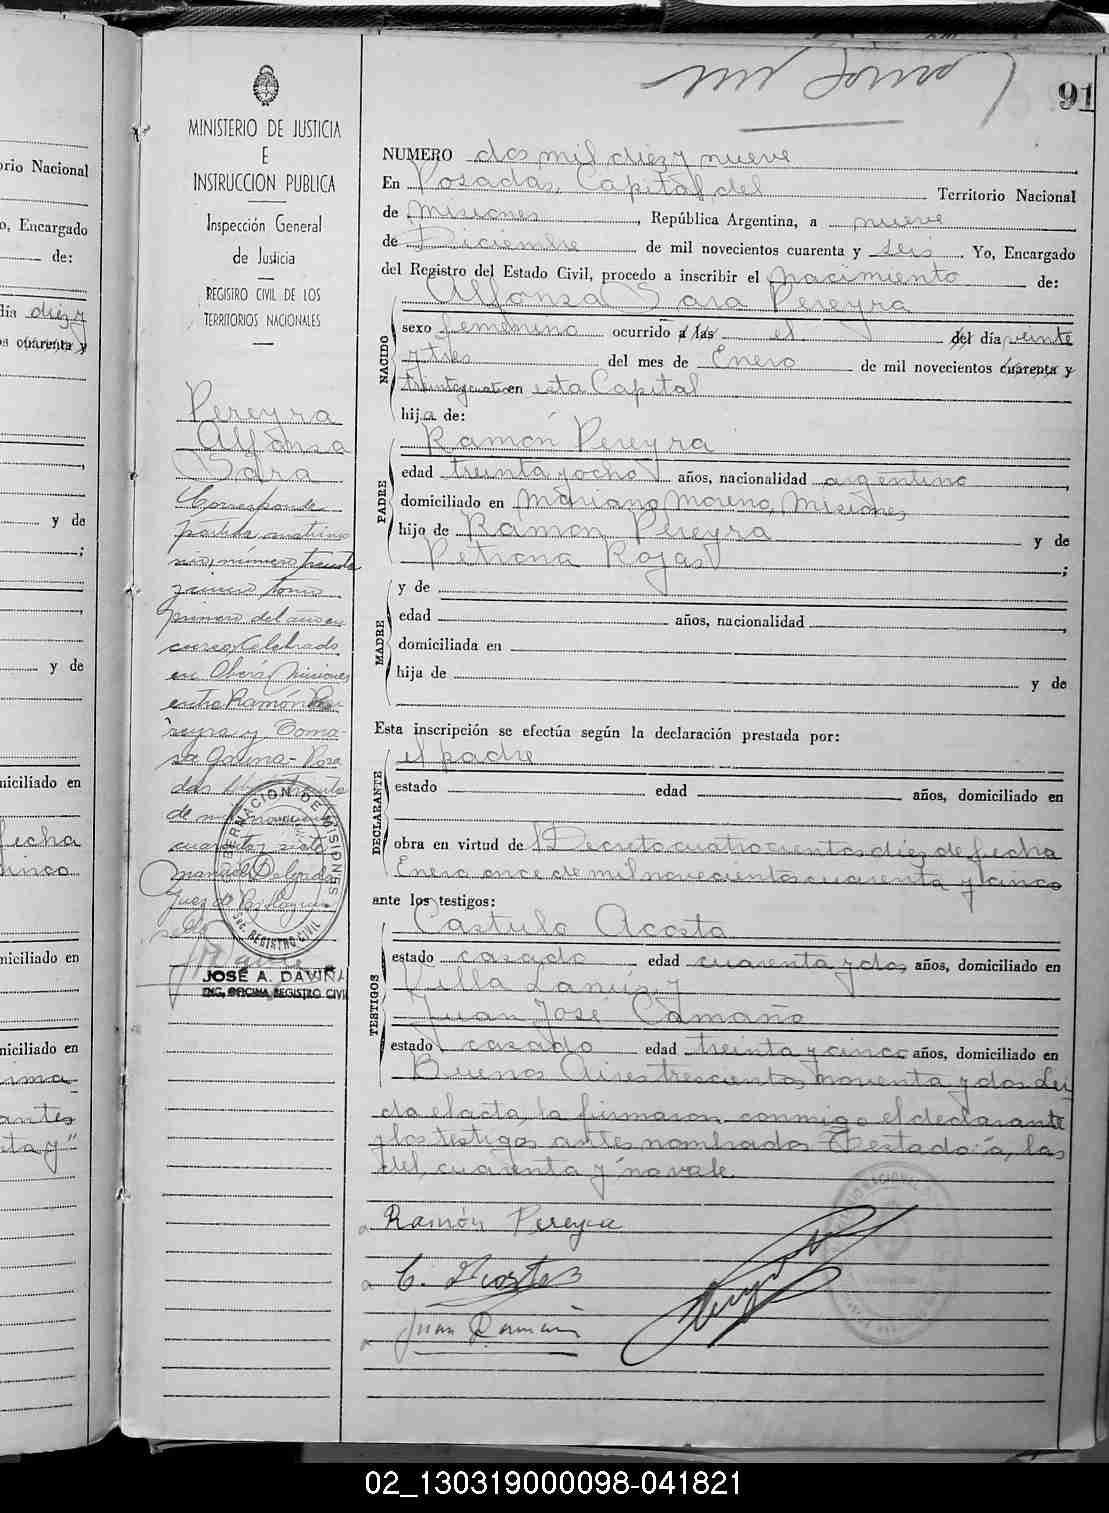 91
MINISTERIO DE JUSTICIA
E
INSTRUCCION PUBLICA
Inspección General
de Justicia
REGISTRO CIVIL DE LOS
TERRITORIOS NACIONALES
Pereyra
Alfonsa
Sara
Corresponde
partida matrimo
nio, número treinta
tomo
primero del año en
curso, Celebrado
en Oberá, Misiones
entre Ramón Pe-
reyra y Toma-
sa Posa
das
de mil novecientos
cuarenta y siete
Manuel Delgado
Juez de
GOBERNACION DE MISIONES
REGISTRO CIVIL
JOSÉ A. DAVIÑA
ENC. OFICINA REGISTRO CIVIL
NUMERO dos mil diez y nueve
En Posadas, Capital del Territorio Nacional
de Misiones, República Argentina, a nueve
de Diciembre de mil novecientos cuarenta y seis. Yo, Encargado
del Registro del Estado Civil, procedo a inscribir el nacimiento de:
NACIDO
Alfonsa Sara Pereyra
sexo femenino ocurrido a las el del día veinte
y tres del mes de Enero de mil novecientos cuarenta y
treinta y cuatro en esta Capital
hija de:
PADRE
Ramón Pereyra
edad treinta y ocho años, nacionalidad argentino
domiciliado en Mariano Moreno, Misiones
hijo de Ramón Pereyra y de
Petrona Rojas;
MADRE
y de
edad años, nacionalidad
domiciliada en
hija de y de
Esta inscripción se efectúa según la declaración prestada por:
DECLARANTE
el padre
estado edad años, domiciliado en
obra en virtud de Decreto cuatrocientos diez de fecha
Enero once de mil novecientos cuarenta y cinco
ante los testigos:
TESTIGOS
Castulo Acosta
estado casado edad cuarenta y dos años, domiciliado en
Villa Lanús y
Juan José Camaño
estado casado edad treinta y cinco años, domiciliado en
Buenos Aires trescientos noventa y dos Leí
da el acta, la firmaron conmigo el declarante
y los testigos antes nombrados Testado: á, las
del, cuarenta y no vale
Ramón Pereyra
C. Acosta
Juan Camaño
rio Nacional
o, Encargado
de:
día diez y
os cuarenta y
y de
;
y de
niciliado en
fecha
cinco
niciliado en
niciliado en
irma
antes
ta y"
02_130319000098-041821